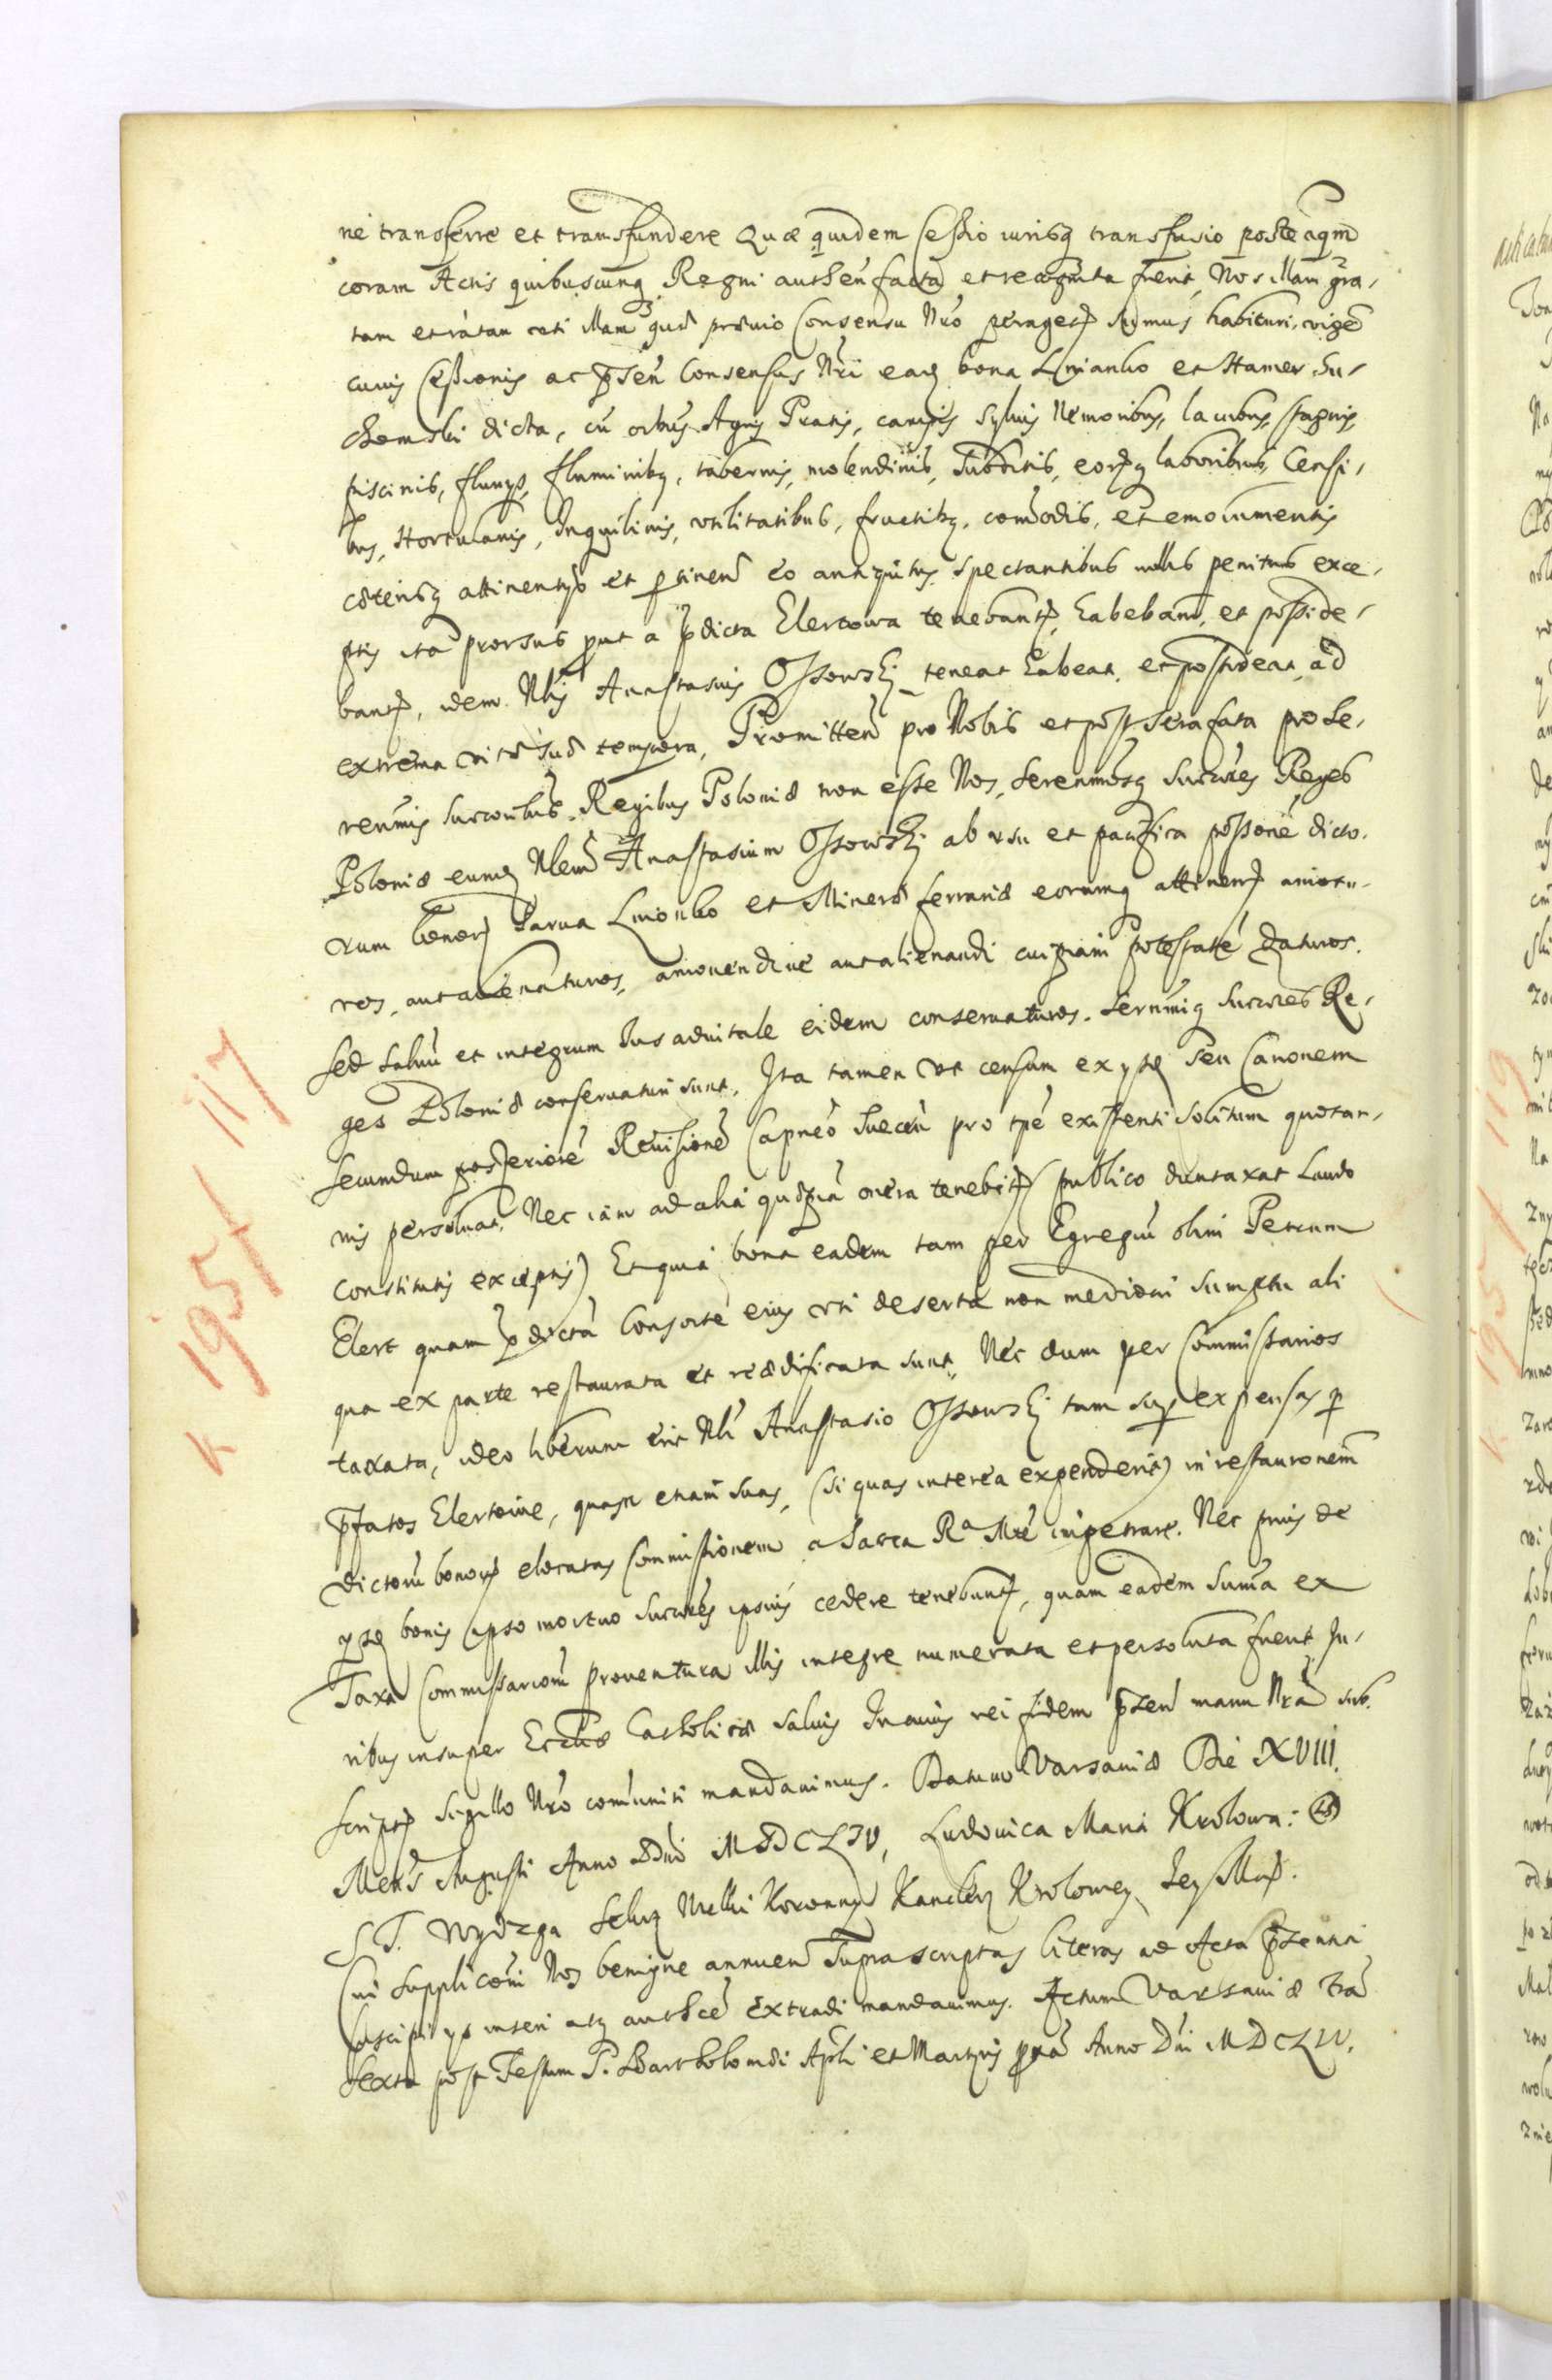 ne transferre et transfundere Quæ quidem Cessio iurisq transfusio posteaqm
coram Actis quibuscunq Regni authen facta et recognita fuerit, Nos illam gra,
tam et ratam ceti illam quæ prævio Consensu Nro peraget sumus habituri, vigo
cuius Cessionis ac psen Consensus Nri eadẽ bona Lnianko et Hamer Su,
chomski dicta, cũ oibus Agris Pratis, campis Sylvis Nemoribus, lacubus, stagnis,
piscinis, fluvys, fluminibq, tabernis, molendinis, Subditis, eorq laboribus, Censi,
bus, Hortulanis, Inquilinis, utilitatibus, fructibq, comodis, et emolumentis
cæterisq attinentys et ptinen eo antiquitus spectantibus nullis penitus exce,
ptis ita prorsus put a pdicta Elertowa tenebant, habebant, et posside,
bant, idem Nlis Anastasius Ossowski teneat habeat, et possideat, ad
extrema vitæ suæ tempora, Promitten pro Nobis et post sera fata pro Se,
renmis Surroribus Regibus Poloniæ non esse Nos, Serenmosq Succres Reges
Poloniæ eundẽ Nlem Anastasium Ossowski ab usu et pacifica possone dicto,
rum bonor Parva Lnionko et Mineræ ferrariæ eorumq attinen amotu,
ros, aut alienaturos, amovendive aut alienandi cuipiam potestate daturos.
Sed salvũ et integrum Jus advitale eidem conservaturos. Sernmiq Succres Re,
ges Poloniæ conservaturi sunt, Ita tamen ut censum ex ysdẽ seu Canonem
secundum posteriore Revisione Capneo Suecen pro tpe existenti solitum quotan,
nis persolvat, Nec iam ad alia quæpiã onera tenebit (publico duntaxat Laudo
constitutis exceptis) Et quia bona eadem tam per Egregiũ olim Petrum
Elert quam p dictã Consorte eius uti deserta non mediocri sumptu ali
qua ex parte restaurata et reædificata sunt, Nec dum per Commissarios
taxata, ideo liberum erit Nli Anastasio Ossowski tam sup expensas p
pfatos Elertowe, quasn etiam suas, (si quas interea expenderit) in restauronem
dictorũ bonor elocatas Commissionem a Sacra Ra Mte impetrare. Nec prius de
ysdẽ bonis ipso mortuo Succres ipsius cedere tenebunt, quam eadem Suma ex
Taxa Commissariorũ proventura illis integre numerata et persoluta fuerit Ju,
ribus insuper Ecclæ Catholicæ salvis In cuius rei fidem psen manu Nra sub,
script sigillo Nro comuniri mandavimus. Datum Varsaviæ Die XVIII.
Mens Augusti Anno Dni MDCLIV, Ludovica Maria Krolowa: LS
S T. Wydzga Sekrz Wielki Koronny Kanclerz Krolowey Jey Mci.
Cui Suppliconi Nos benigne annuen Suprascriptas literas ad Acta psentia
suscipi ys inseri atq authce extradi mandavimus. Actum Varsaviæ Fra
Sexta post Festum S. Bartholomæi Apli et Martyris pxa Anno Dni MDCLIV.
K 1951 117
K 1951 119